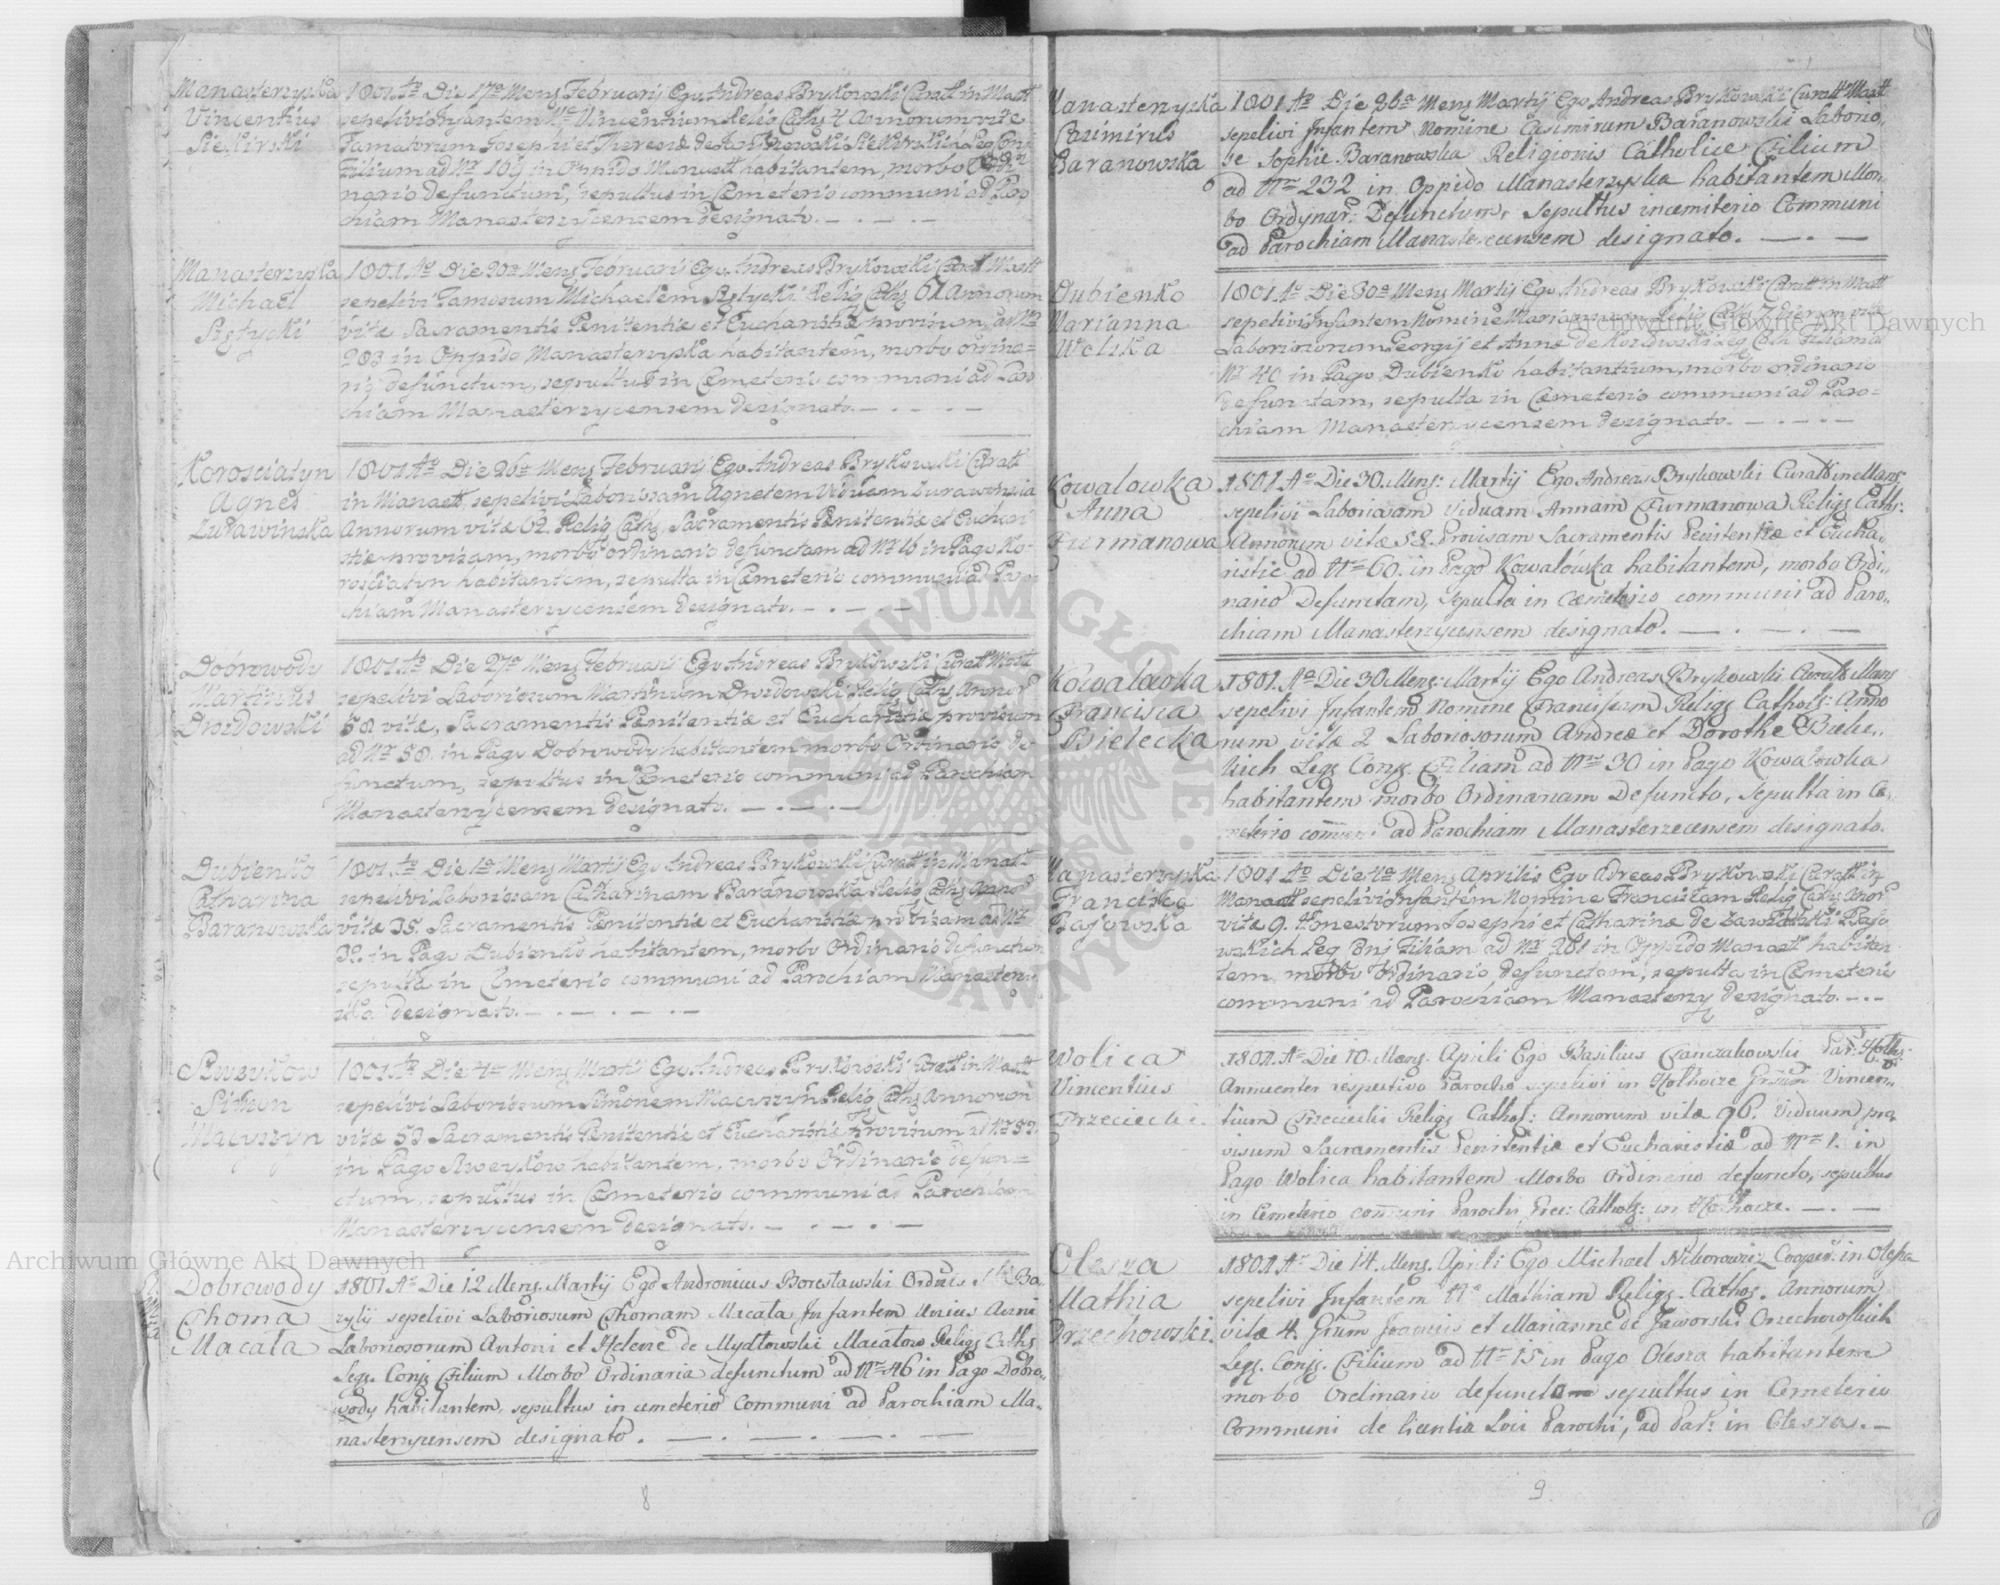 Manasterzyska
Vincentius
Siekirski
1801 Ao Die 17a Mens Februarii Ego Andreas Brykowski Curatt in Mastt
sepelivi Infantem Vincentium Relig Cathз Annorum vitæ
Famatorum Josephi et Theresiæ de Leg Conj
Filium ad Nr 164 in Oppido Manast habitantem, morbo Ordi
nario defunctum, sepultus in Cœmeterio communi ad Paro
chiam Manasterzycensem designato. — . — . —
Manasterzyska
Michael
1801 Ao Die 20a Mens Februarii Ego Andreas Brykowski Curatt Mastt
sepelivi Famosum Michaelem Relig Cathз 61 Annorum
vitæ Sacramentis Penitentiæ et Eucharistiæ provisum, ad Nr
203 in Oppido Manasterzyska habitantem, morbo ordina=
rio defunctum, sepultus in Cœmeterio communi ad Paro
chiam Manasterzycensem designato. — . — . —
Korosciatyn
Agnes
Zurawinska
1801 Ao Die 26a Mens Februarii Ego Andreas Brykowski Curatt
in Manast sepelivi Laboriosam Agnetem Viduam
Annorum vitæ 62. Relig Cathз, Sacramentis Penitentiæ et Euchari
stiæ provisam, morbo ordinario defunctam ad Nr 16 in Pago Ko-
rosciatyn habitantem, sepulta in Cœmeterio communi ad Paro
chiam Manasterzycensem designato. — . — . —
Dobrowody
Martinus
Drozdowski
1801 Ao Die 27a Mens Februarii Ego Andreas Brykowski Curatt Mastt
sepelivi Laboriosum Martinum Drozdowski Relig Cathз Annor
58 vitæ, Sacramentis Penitentiæ et Eucharistiæ provisum
ad Nr 58. in Pago Dobrowody habitantem morbo Ordinario de
functum, sepultus in Cœmeterio communi ad Parochiam
Manasterzycensem designato. — . — . —
Dubienko
Catharina
Baranowska
1801 Ao Die 1a Mens Martii Ego Andreas Brykowski Curatt in Manast
sepelivi Laboriosam Catharinam Baranowska Relig Cathз Annor
vitæ 35. Sacramentis Penitentiæ et Eucharistiæ provisam ad Nr
32. in Pago Dubienko habitantem, morbo Ordinario defunctam
sepulta in Cœmeterio communi ad Parochiam Manasterzy
ska designato. — . — . —
Simon
Macyszyn
1801 Ao Die 4a Mens Martii Ego Andreas Brykowski Curatt in Mastt
sepelivi Laboriosum Simonem Macyszyn Relig Cathз Annorum
vitæ 53 Sacramentis Penitentiæ et Eucharistiæ provisum ad Nr 52.
in Pago habitantem, morbo Ordinario defun=
ctum, sepultus in Cœmeterio communi ad Parochiam
Manasterzycensem designato. — . — . —
Dobrowody
Thoma
Macała
1801 Ao Die 12 Mens. Martij Ego Andronicus Boresławski Ordinis Sti Ba„
zylij sepelivi Laboriosum Thomam Macała Infantem Unius Anni
Laboriosorum Antoni et Helenæ de Mydłowski Macałow Religз Cathз
Legз. Conjз Filium Morbo Ordinaria defunctum ad Nr 46 in Pago Dobro„
wody habitantem, sepultus in cemeterio Communi ad Parochiam Ma„
nasterzycensem designato . — . — . — . —
8
Manasterzyska
Casimirus
Baranowska
1801 Ao Die 26a Mens Martij Ego Andreas Brykowski Curatt Mastt
sepelivi Infantem Nomine Casimirum Baranowski Laborio„
se Sophie Baranowska Religionis Catholice Filium
ad Nr 232 in Oppido Manasterzyska habitantem Mor„
bo Ordynar: Defunctum, Sepultus in cemiterio Communi
ad Parochiam Manasterecensem designato. — . —
Dubienko
Marianna
Wolska
1801 Ao Die 30a Mens Martij Ego Andreas Brykowski Curatt in Mastt
sepelivi Infantem Nomine Mariannam Relig Cath 7 Dierum vitæ
Laboriosorum Georgij et Annæ de Leg Conj Filiam ad
Nr 40 in Pago Dubienko habitantium, morbo ordinario
defunctam, sepulta in Cœmeterio communi ad Paro=
chiam Manasterzycensem designato. — . — . —
Kowalowka
Anna
Furmanowa
1801 Ao Die 30 Mens: Martij Ego Andreas Brykowski Curatt in Mans
sepelivi Laboriosam Viduam Annam Furmanowa Religз Cathз:
Annorum vitæ 58. Provisam Sacramentis Penitentiæ et Eucha„
ristie ad Nr 60. in Pago Kowalówka habitantem, morbo Ordi„
nario Defunctam, Sepulta in Cœmeterio communi ad Paro„
chiam Manasterzycensem designato. — . — . —
Kowalówka
Francisca
Bielecka
1801. Ao Die 30 Mens: Martij Ego Andreas Brykowski Curatt Mans
sepelivi Infantem Nomine Franciscam Religз Catholз: Anno
rum vitæ 2 Laboriosorum Andreæ et Dorothe Biele„
kich Legз Conjз. Filiam ad Nr 30 in Pago Kowalówka
habitantem morbo Ordinariam Defuncto, Sepulta in Ce„
meterio communi ad Parochiam Manasterzecensem designato.
Manasterzyska
Francisca
Bajowska
1801 Ao Die 4a Mens Aprilis Ego Adreas Brykowski Curatt in
Manast sepelivi Infantem Nomine Franciscam Relig Cathз Annor
vitæ 9. Honestorum Josephi et Catharinæ de Bajo
wskich Leg Conj Filiam ad Nr 281 in Oppido Manast habitan
tem, morbo Ordinario defunctam, sepulta in Cœmeterio
communi ad Parochiam Manasterzy designato. — . —
Wolica
Vincentius
Trzeciecki.
1801. Ao Die 10. Mens. Aprili Ego Basilius Par:
Annuenter respectivo Parocho sepelivi in Vincen„
tium Trzeciecki Religз Cathoł: Annorum vitæ 96. Viduum pro„
visum Sacramentis Penitentiæ et Eucharistiæ ad Nr 1. in
Pago Wolica habitantem Morbo Ordinario defuncto, sepultus
in Cemeterio communi Parochi, Grec: Catholз: in . — . —
Olesza
Mathia
Orzechowski.
1801 Ao Die 14. Mens. Aprili Ego Michael Nikorowicz Cooper: in Olesza
sepelivi Infantem No Mathiam Religз. Cathoз. Annorum
vitæ 4. Joannis et Marianne de Jaworski Orzechowskich
Legз. Conjз. Filium ad Nr 15 in Pago Olesza habitantem
morbo Ordinario defuncto sepultus in Cemeterio
Communi de licentia Loci Parochi, ad Par: in Olesza. —
9
ARCHIWUM GŁÓWNE AKT DAWNYCH
Archiwum Główne Akt Dawnych
Archiwum Główne Akt Dawnych